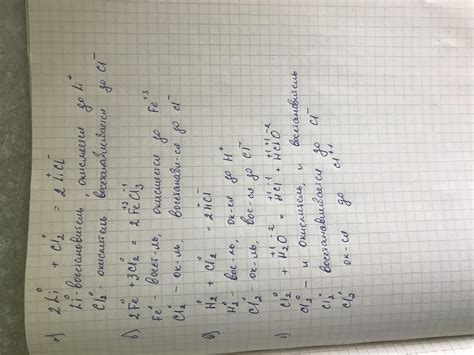 а) 2Li⁰ + Cl₂⁰ = 2Li⁺Cl⁻
Li⁰ - восстановитель, окисляется до Li⁺
Cl₂⁰ - окислитель, восстанавливается до Cl⁻
б) 2Fe⁰ + 3Cl₂⁰ = 2Fe⁺³Cl₃⁻¹
Fe⁰ - восст-ль, окисляется до Fe⁺³
Cl₂⁰ - ок-ль, восстанавл-ся до Cl⁻
в) H₂⁰ + Cl₂⁰ = 2HCl
H₂⁰ - вос-ль, ок-ся до H⁺
Cl₂⁰ - ок-ль, вос-ся до Cl⁻
г) Cl₂⁰ + H₂⁺¹O⁻² = H⁺¹Cl⁻¹ + H⁺¹Cl⁺¹O⁻²
Cl₂⁰ - и окислитель, и восстановитель
Cl₂⁰ восстанавливается до Cl⁻
Cl₂⁰ ок-ся до Cl⁺¹